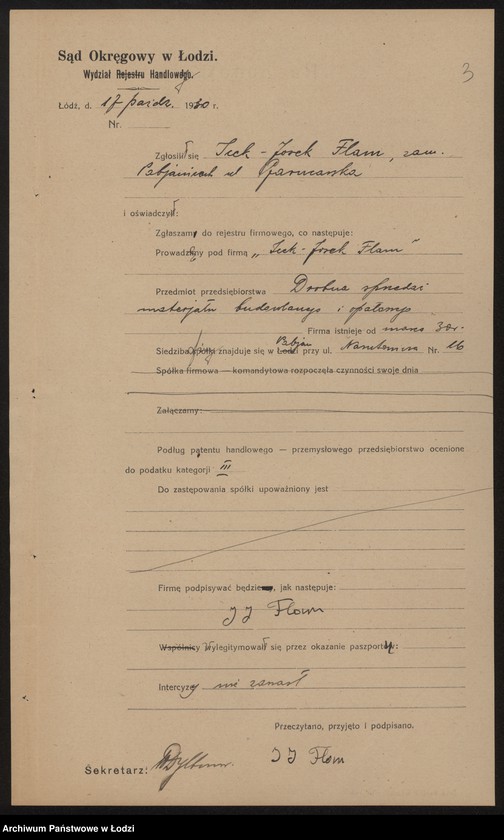 3
Sąd Okręgowy w Łodzi.
Wydział Rejestru Handlowego.
Łódź, d. 17 paźdz. 1930 r.
Nr.
Zgłosił się Icek-Josek Flam, zam.
Pabjanicach ul
i oświadczył:
Zgłaszam do rejestru firmowego, co następuje:
Prowadzę pod firmą „Icek-Josek Flam"
Przedmiot przedsiębiorstwa Drobna sprzedaż
materjału budowlanego i opałowego
Firma istnieje od marca 30 r.
Siedziba spółki znajduje się w Łodzi Pabjan przy ul. Nr. 16
Spółka firmowa — komandytowa rozpoczęła czynności swoje dnia
Załączamy:
Podług patentu handlowego — przemysłowego przedsiębiorstwo ocenione
do podatku kategorji III
Do zastępowania spółki upoważniony jest
Firmę podpisywać będzie, jak następuje:
J J Flam
Wspólnicy wylegitymował się przez okazanie paszportu:
Intercyzy nie zawarł
Przeczytano, przyjęto i podpisano.
Sekretarz: J J Flam
Archiwum Państwowe w Łodzi